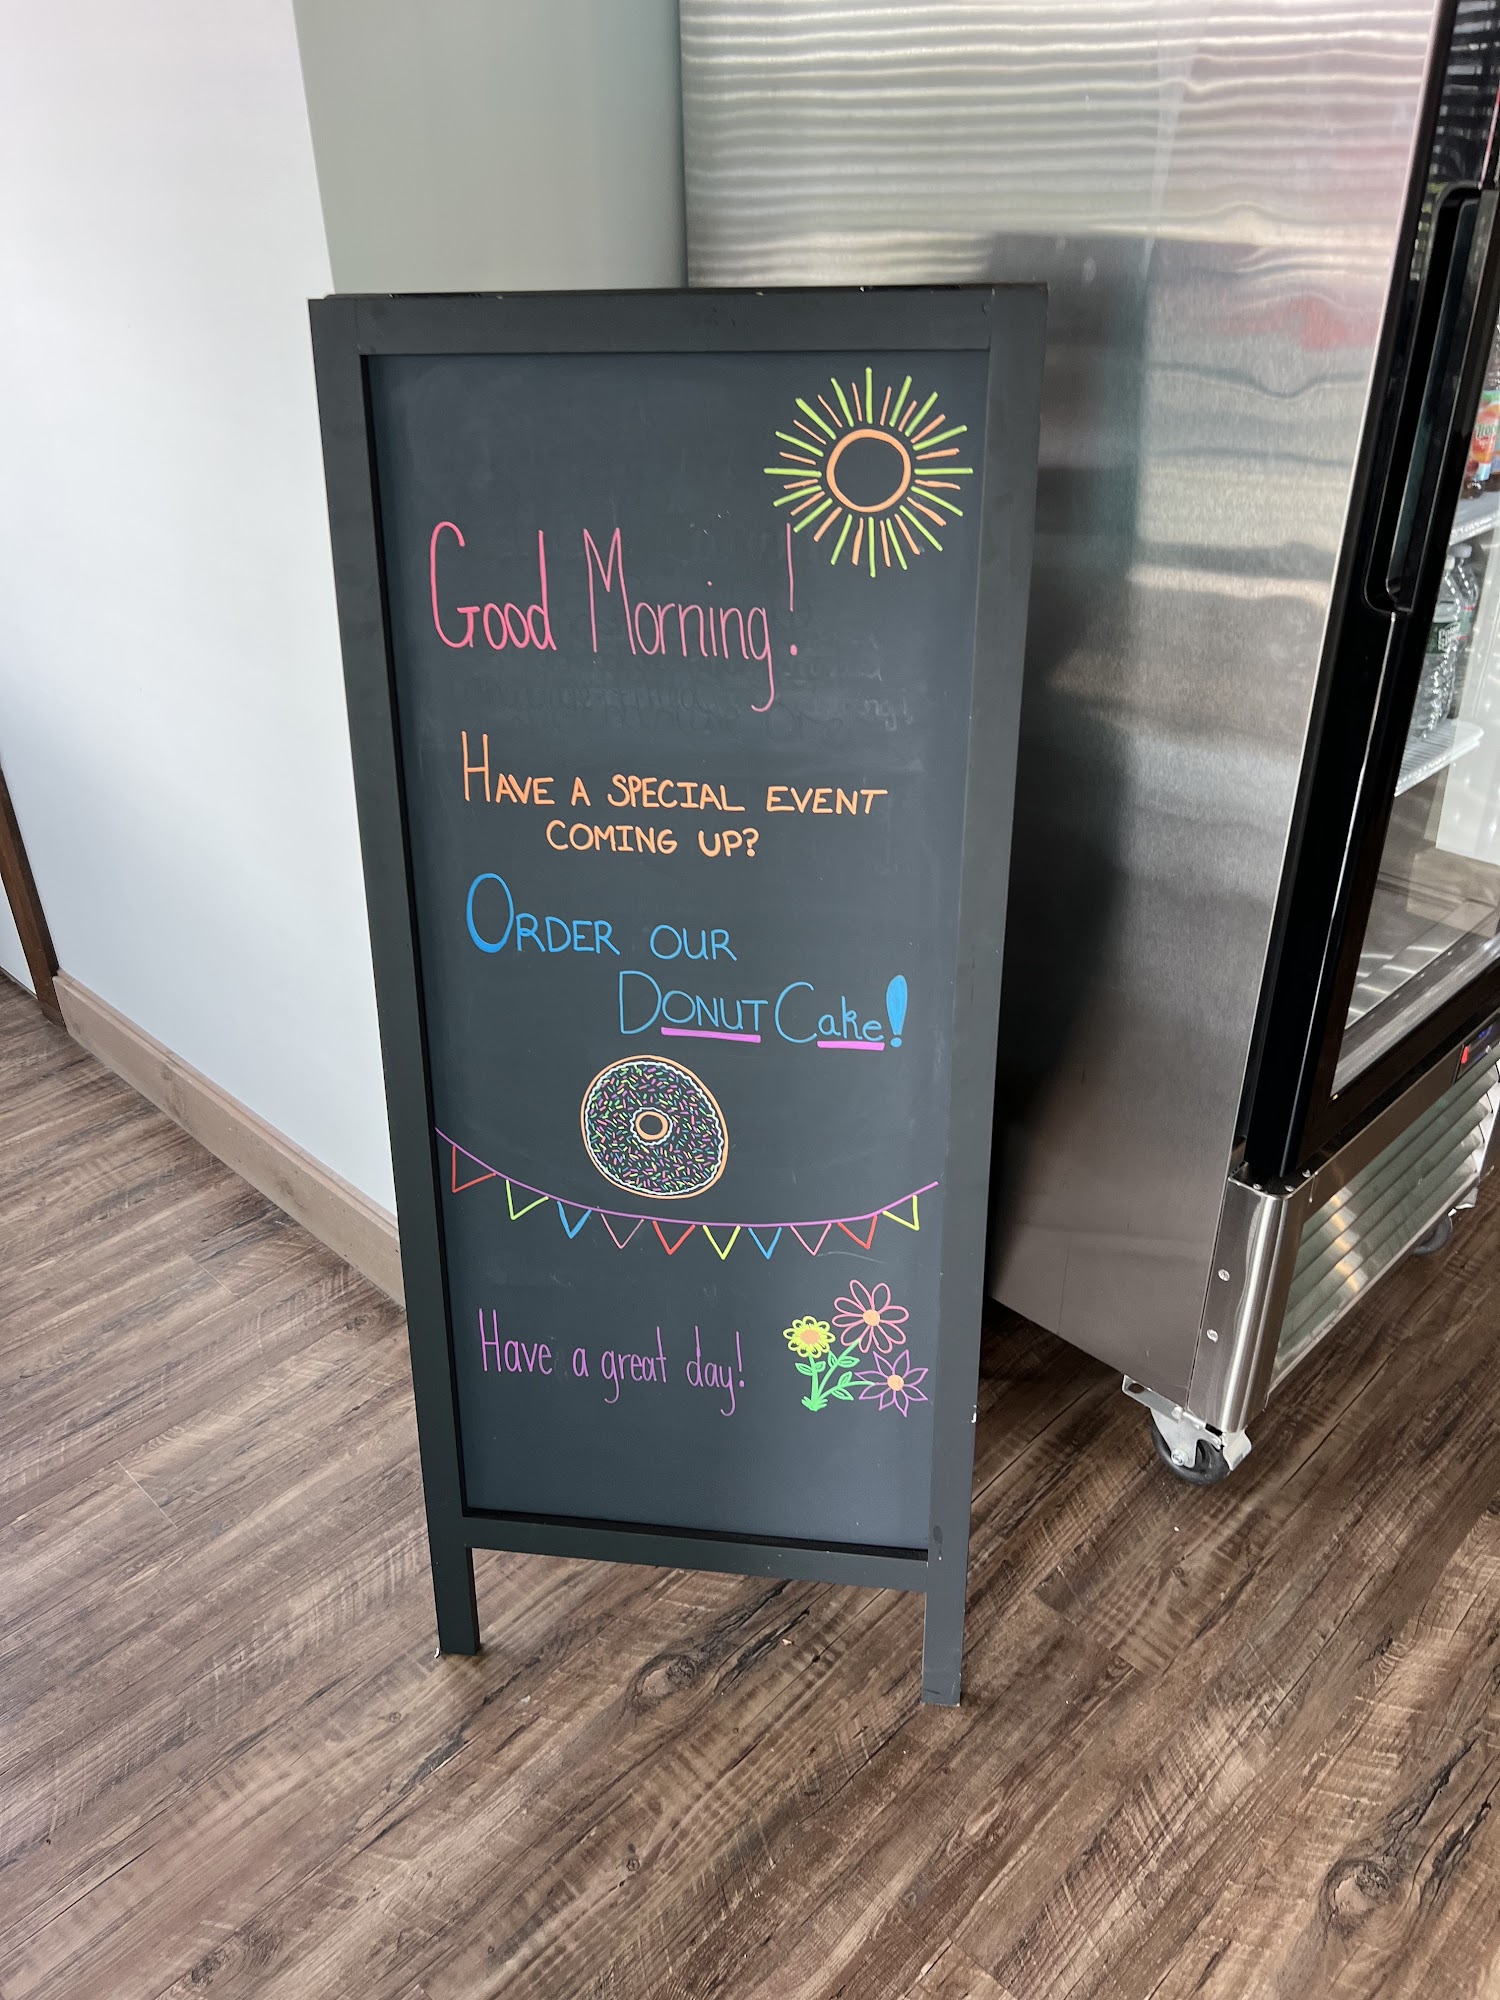 Good Morning!
HAVE A SPECIAL EVENT
COMING UP?
ORDER OUR
DONUT Cake!
Have a great day!